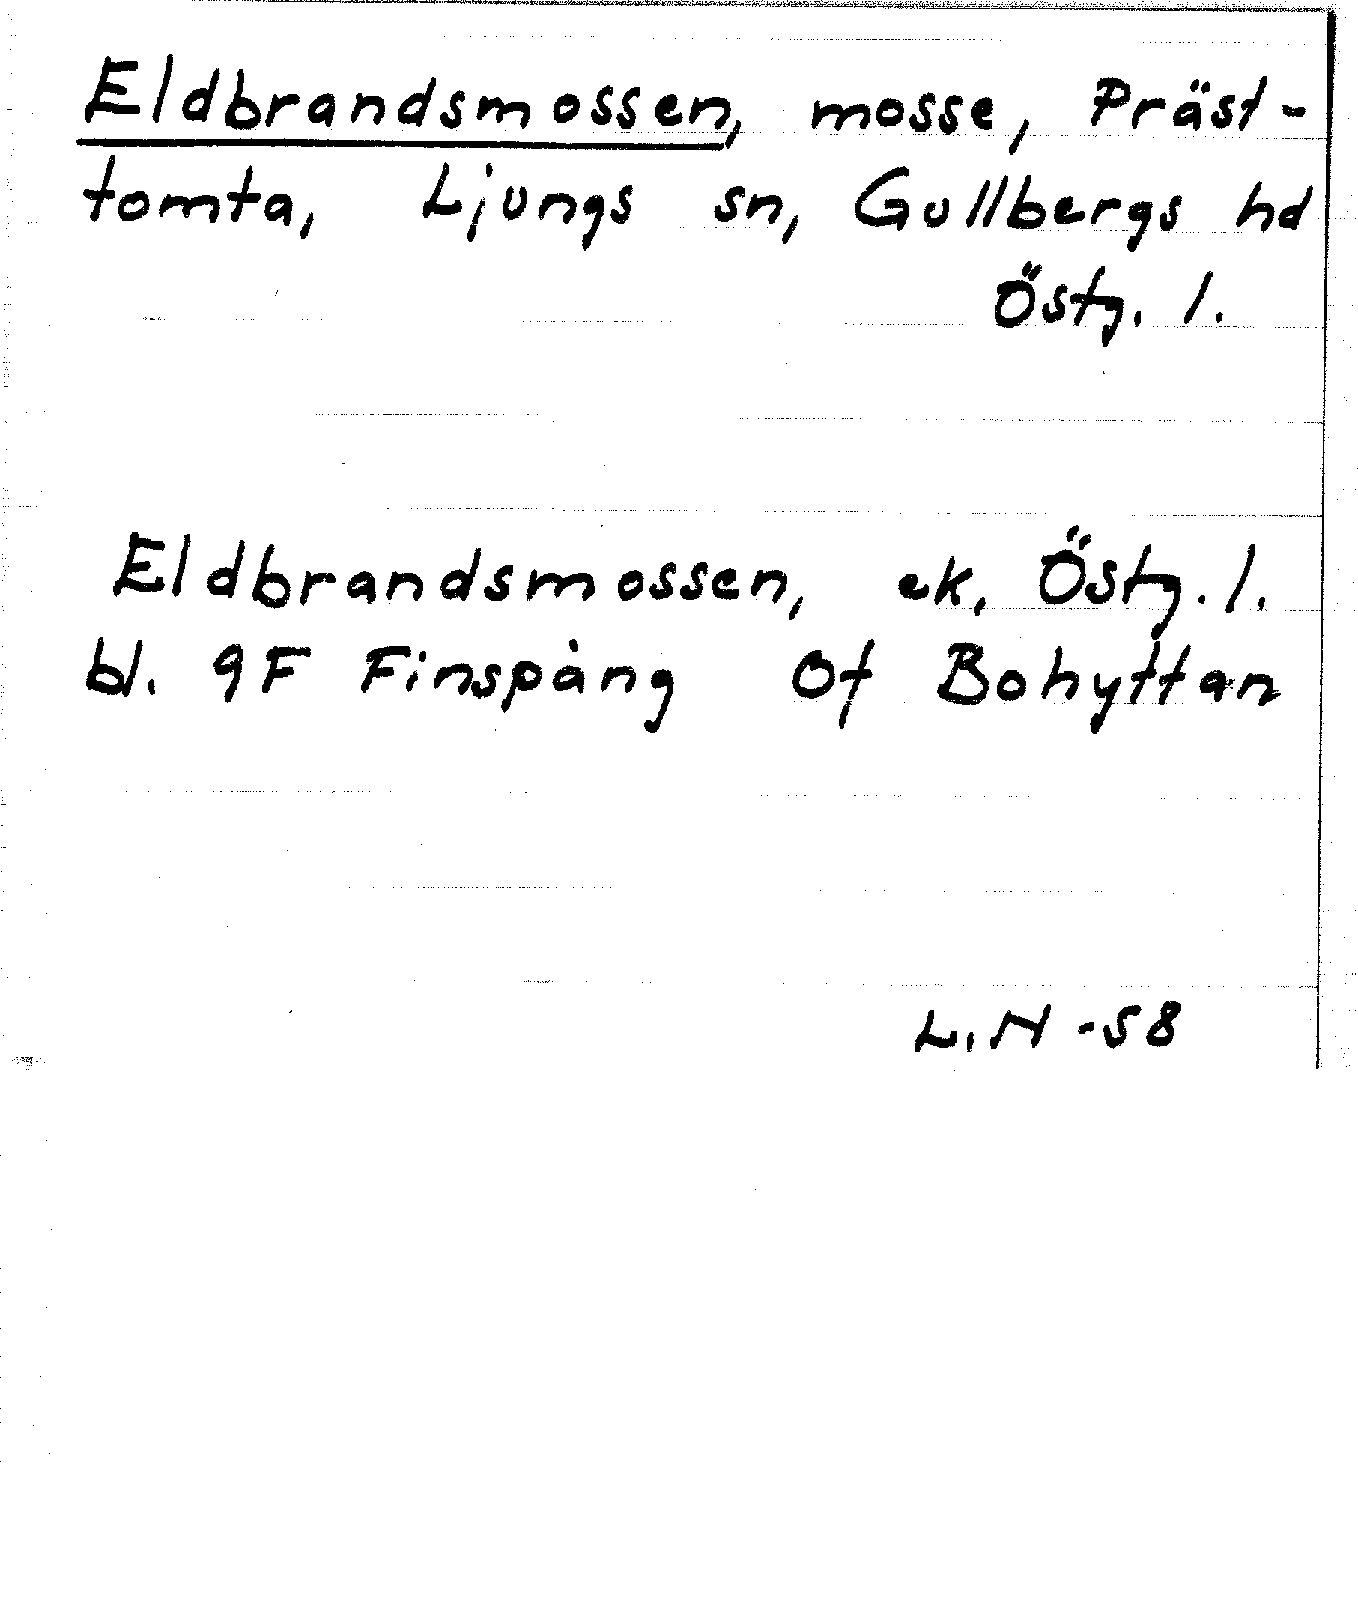 Eldbrandsmossen, mosse, Präst-
tomta, Ljungs sn, Gullbergs hd
Östg. l.
Eldbrandsmossen, ek, Östg. l.
bl. 9F Finspång Of Bohyttan
L. N -58